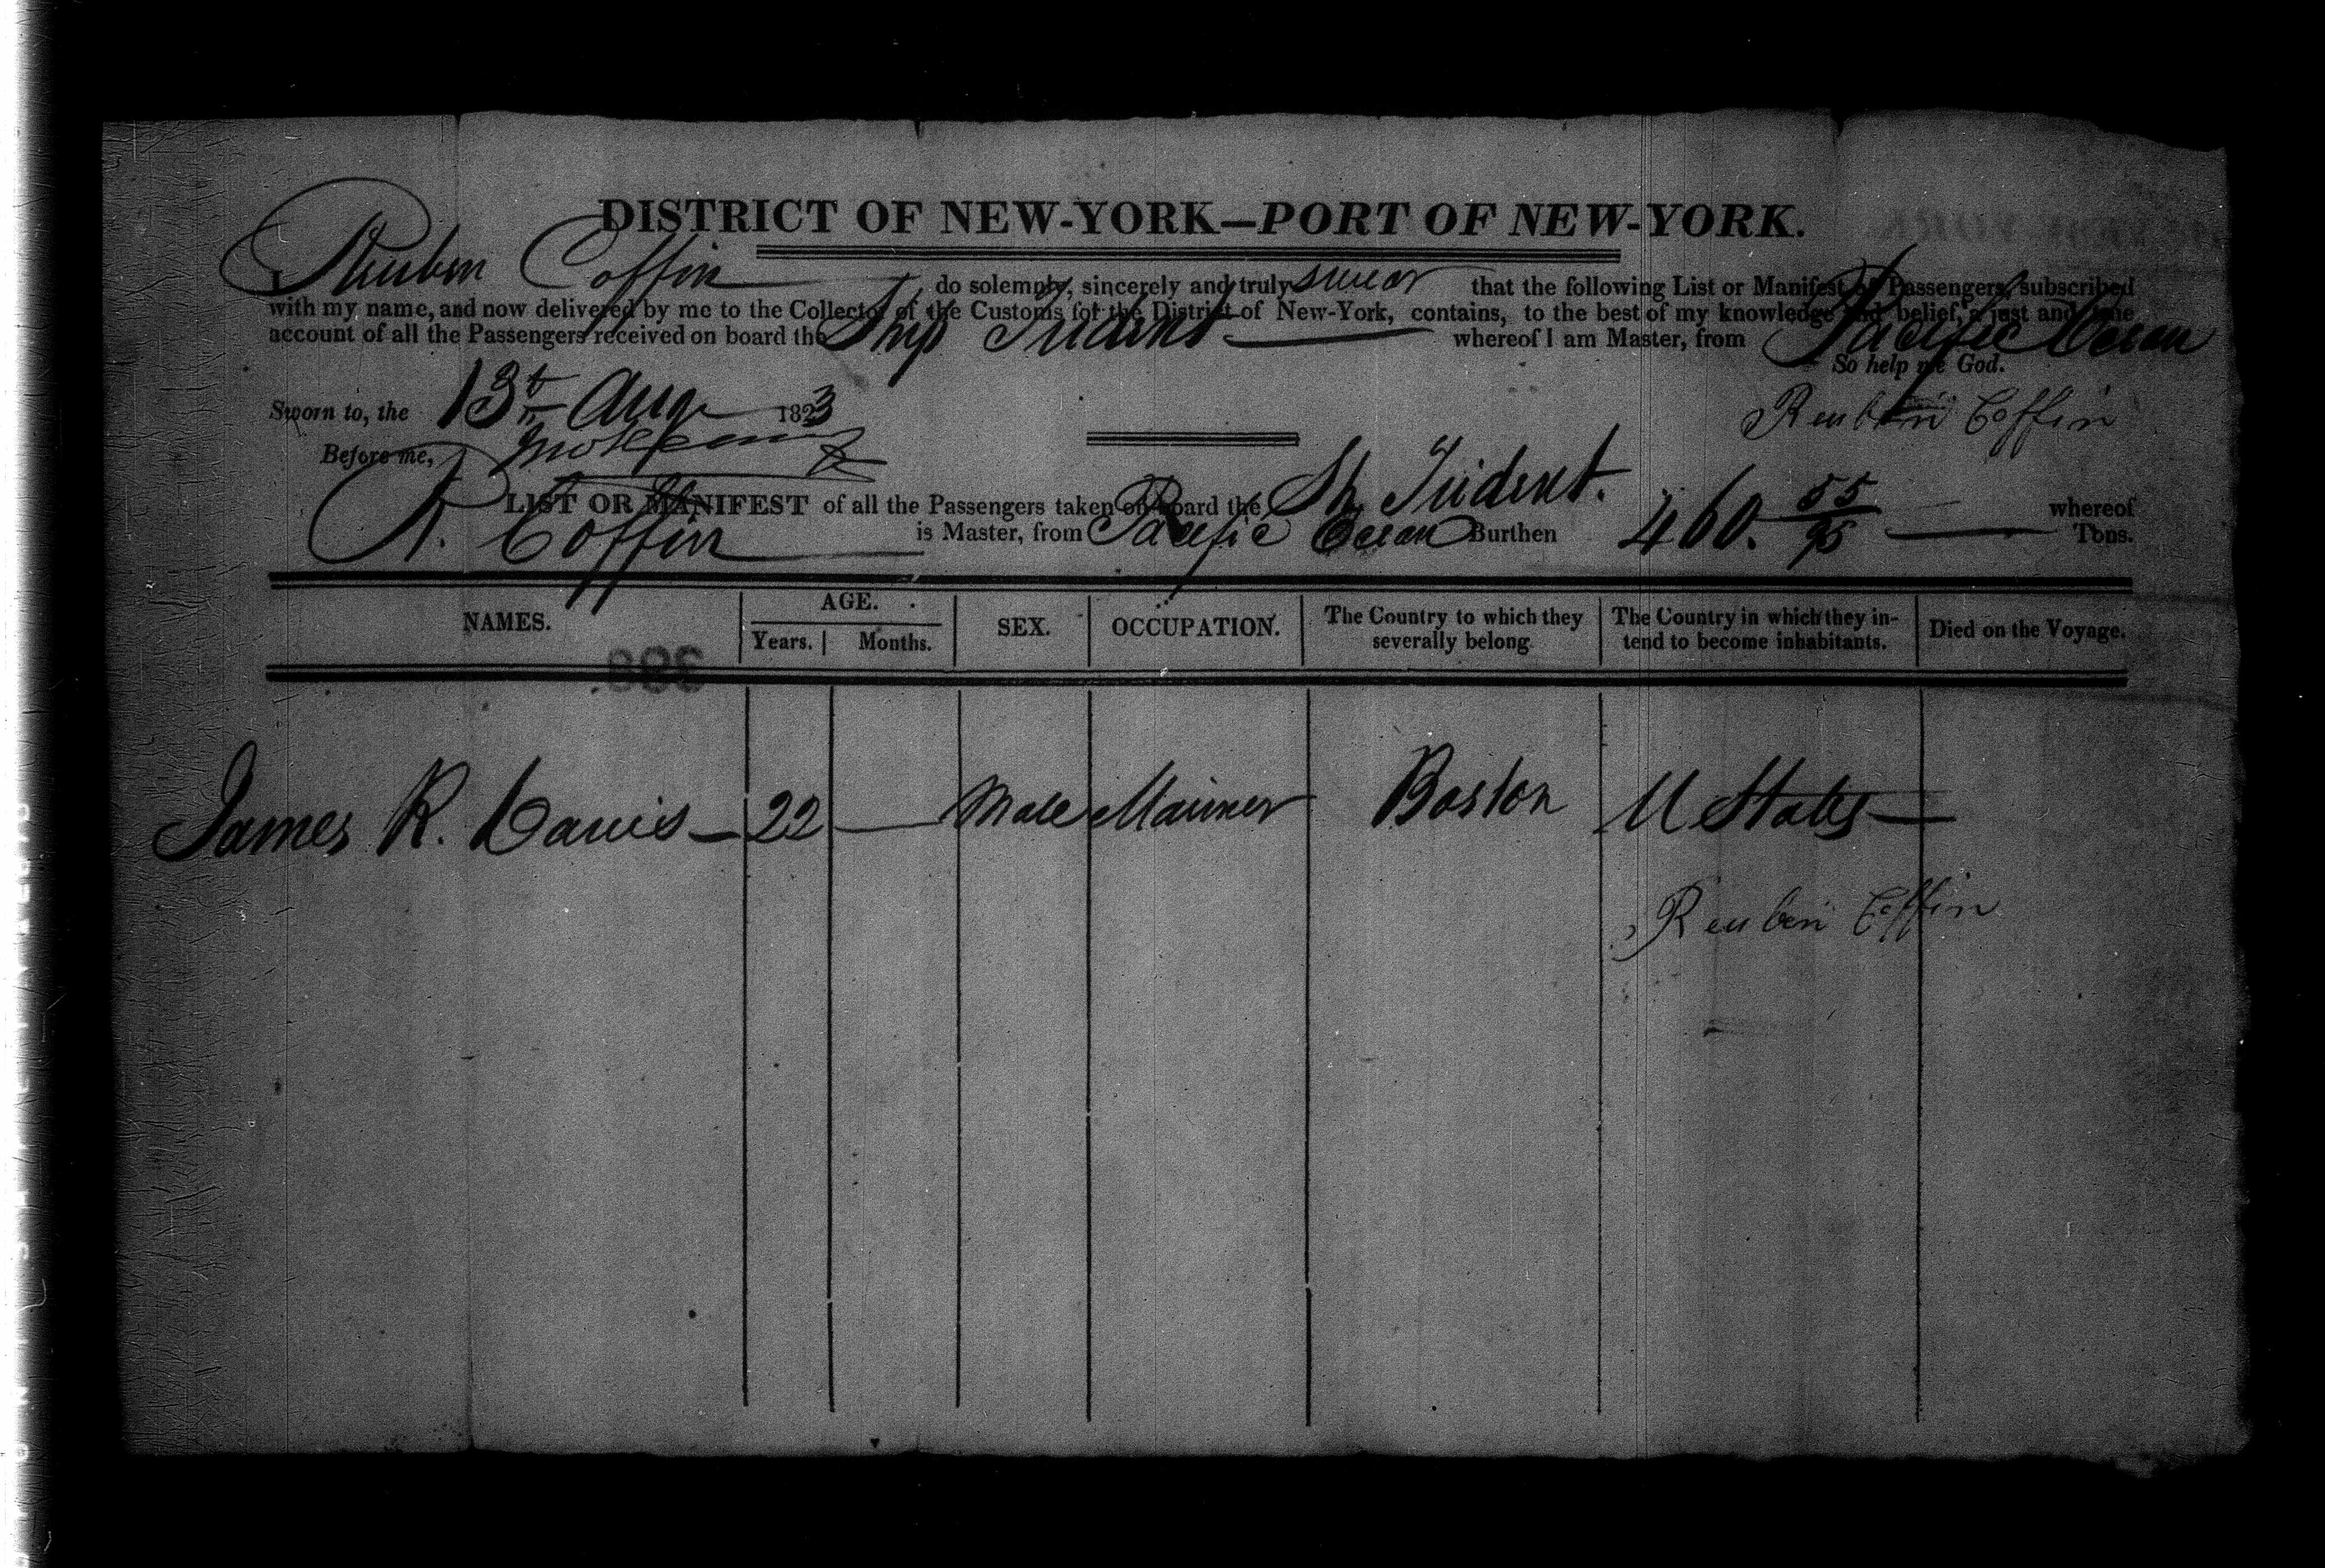 DISTRICT OF NEW-YORK—PORT OF NEW-YORK.
Reuben Coffin do solemnly, sincerely and truly swear that the following List or Manifest of Passengers, subscribed
with my name, and now delivered by me to the Collector of the Customs for the District of New-York, contains, to the best of my knowledge and belief, a just and true
account of all the Passengers received on board the Ship Trident whereof I am Master, from Pacific Ocean
So help me God.
Sworn to, the 13th Aug 1823
Reuben Coffin
Before me,
LIST OR MANIFEST of all the Passengers taken on board the Sh. Trident. whereof
R. Coffin is Master, from Pacific Ocean Burthen 460. 55/95 Tons.
NAMES. AGE. Years. Months. SEX. OCCUPATION. The Country to which they severally belong. The Country in which they intend to become inhabitants. Died on the Voyage.
James R. Davis — 22 — Male Mariner Boston U States —
Reuben Coffin